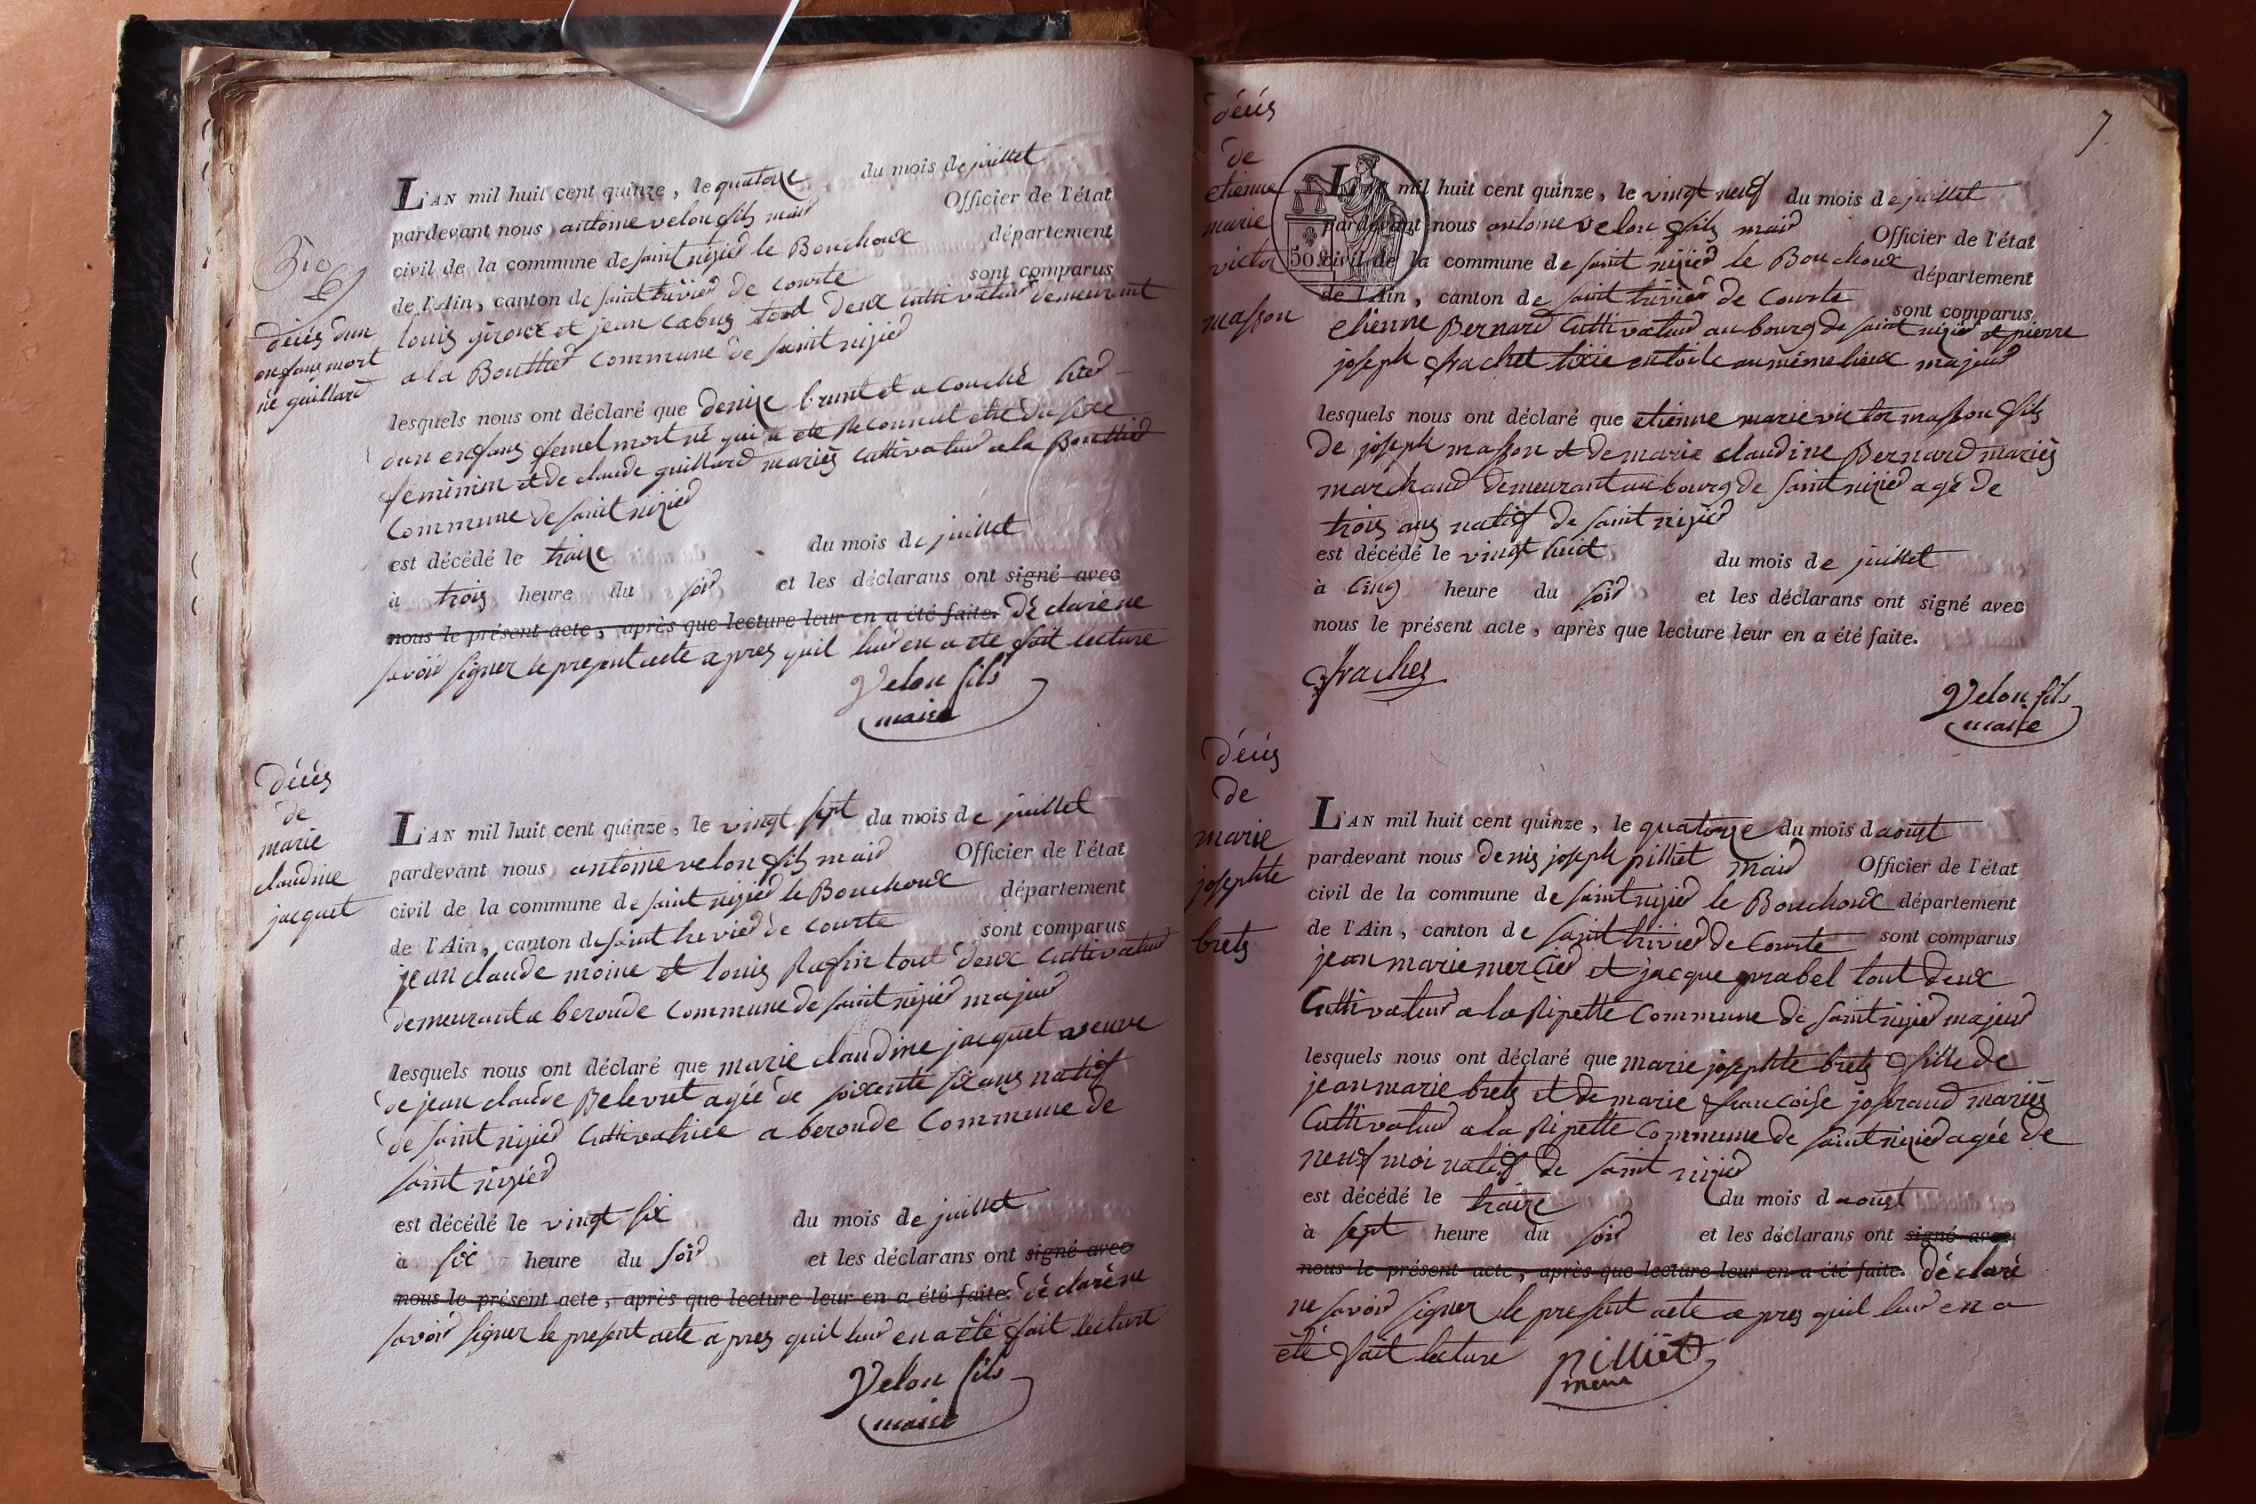 décés d'un
enfans mort
né guillard
L'AN mil huit cent quinze, le quatorze du mois de juillet
pardevant nous antoine velon fils maire Officier de l'état
civil de la commune de saint nizier le Bouchoux département
de l'Ain, canton de saint trivier de Courte sont comparus
louis giroux et jean cabus tout deux Cultivateur demeurant
a la Bouttier Commune de saint nizier
lesquels nous ont déclaré que denize brunet a Couché hier
d'un enfans femel mort né qui a été Reconnut etre du sexe
feminin et de claude guillard mariés Cultivateur a la Bouttier
Commune de saint nizier
est décédé le traize du mois de juillet
à trois heure du soir et les déclarans ont signé avec
nous le présent acte, après que lecture leur en a été faite. déclaré ne
savoir signer le present acte apres quil leur en a ete fait lecture
Velon fils
maire
décés
de
marie
claudine
jacquet
L'AN mil huit cent quinze, le vingt sept du mois de juillet
pardevant nous antoine velon fils maire Officier de l'état
civil de la commune de saint nizier le Bouchoux département
de l'Ain, canton de saint trevier de Courte sont comparus
jean claude moine et louis Rafin tout deux Cultivateur
demeurant a beroude Commune de saint nizier majeur
lesquels nous ont déclaré que marie claudine jacquet veuve
de jean claude Belevret agée de soixente six ans natif
de saint nizier Cultivatrice a beroude Commune de
saint nizier
est décédé le vingt six du mois de juillet
à six heure du soir et les déclarans ont signé avec
nous le présent acte, après que lecture leur en a été faite. déclaré ne
savoir signer le present acte apres quil leur en a été fait lecture
Velon fils
maire
7
décés
de
etienne
marie
victor
masson
50
L'AN mil huit cent quinze, le vingt neuf du mois de juillet
pardevant nous antoine velon fils maire Officier de l'état
civil de la commune de saint nizier le Bouchoux département
de l'Ain, canton de saint trivier de Courte sont comparus
etienne Bernard Cultivateur au bourg de saint nizier et pierre
joseph frachet tixie en toile au même lieux majeur
lesquels nous ont déclaré que etienne marie victor masson fils
de joseph masson et de marie claudine Bernard mariés
marchand demeurant au bourg de saint nizier agé de
trois ans natif de saint nizier
est décédé le vingt huit du mois de juillet
à Cinq heure du soir et les déclarans ont signé avec
nous le présent acte, après que lecture leur en a été faite.
frachet
Velon fils
maire
décés
de
marie
josephte
brets
L'AN mil huit cent quinze, le quatorze du mois d aoust
pardevant nous denis joseph pilliet maire Officier de l'état
civil de la commune de saint nizier le Bouchoux département
de l'Ain, canton de saint trivier de Courte sont comparus
jean marie mercier et jacque prabel tout deux
Cultivateur a la Ripette Commune de saint nizier majeur
lesquels nous ont déclaré que marie josephte brets fille de
jean marie brets et de marie francoise joserand mariés
Cultivateur a la Ripette Commune de saint nizier agée de
neuf moi natif de saint nizier
est décédé le traize du mois d aoust
à sept heure du soir et les déclarans ont signé avec
nous le présent acte, après que lecture leur en a été faite. déclaré
ne savoir signer le present acte apres quil leur en a
été fait lecture pilliet
maire